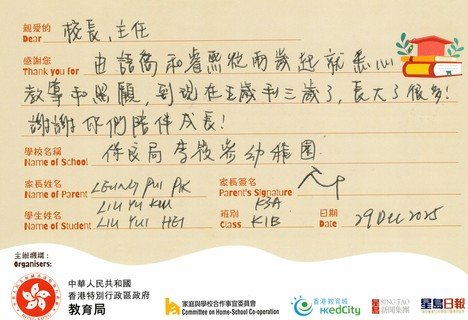 親愛的 校長,主任
Dear
感謝您 由語喬和睿熙從兩歲起就悉心
Thank you for
教導和照顧,到現在五歲和三歲了,長大了很多!
謝謝你們陪伴成長!
學校名稱
Name of School 保良局李俊駒幼稚園
家長姓名 家長簽名
Name of Parent LEUNG PUI PIK Parent's Signature
學生姓名 LIU YU KIU 班別 K3A 日期
Name of Student LIU YUI HEI Class K1B Date 29 Dec 2025
主辦機構:
Organisers:
中華人民共和國
香港特別行政區政府
教育局
家庭與學校合作事宜委員會
Committee on Home-School Co-operation
香港教育城
HKedCity
星島 SING TAO
新聞集團
星島日報